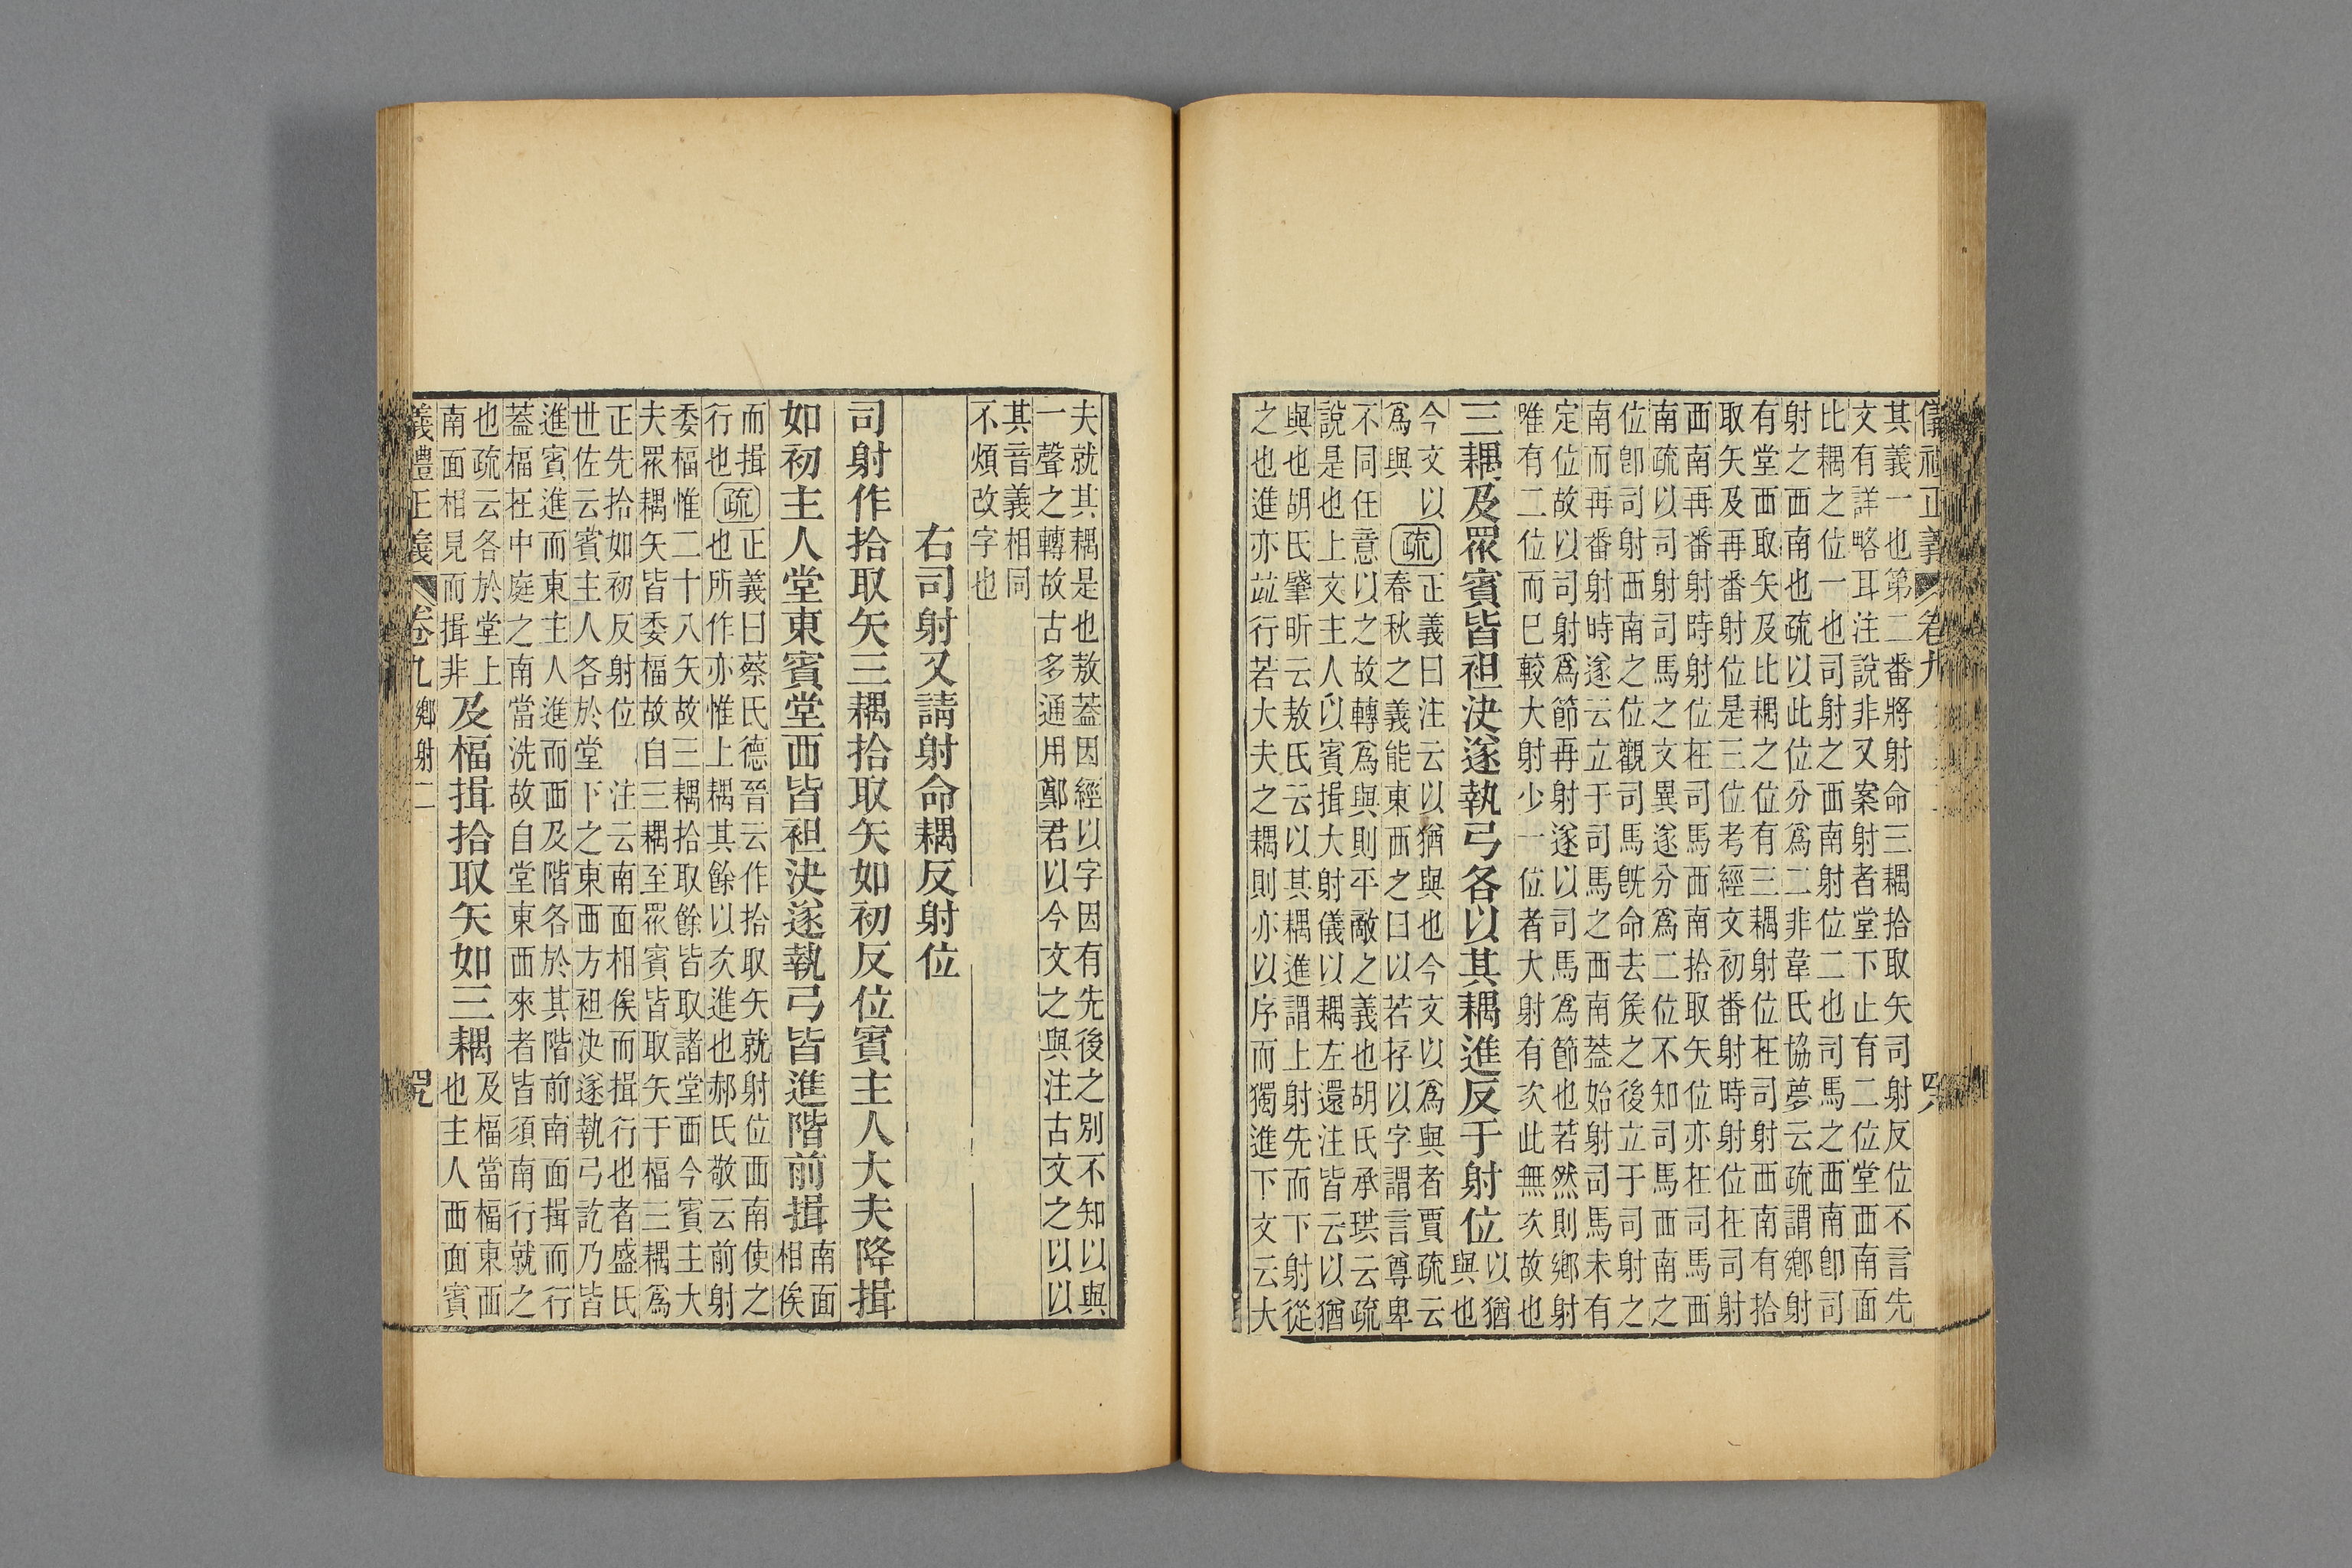 儀禮正義 卷九
其義一也第二番將射命三耦拾取矢司射反位不言先
文有詳略耳注說非又案射者堂下止有二位堂西南面
比耦之位一也司射之西南射位二也司馬之西南卽司
射之西南也疏以此位分爲二非韋氏協夢云疏謂鄉射
有堂西取矢及比耦之位有三耦射位在司射西南有拾
取矢及再番射位是三位考經文初番射時射位在司射
西南再番射時射位在司馬西南拾取矢位亦在司馬西
南疏以司射司馬之文異遂分爲二位不知司馬西南之
位卽司射西南之位觀司馬旣命去矦之後立于司射之
南而再番射時遂云立于司馬之西南葢始射司馬未有
定位故以司射爲節再射遂以司馬爲節也若然則鄉射
唯有二位而已較大射少一位者大射有次此無次故也
三耦及眾賓皆袒決遂執弓各以其耦進反于射位以猶
與也
今文以
爲與疏正義曰注云以猶與也今文以爲與者賈疏云
春秋之義能東西之曰以若存以字謂言尊卑
不同任意以之故轉爲與則平敵之義也胡氏承珙云疏
說是也上文主人以賓揖大射儀以耦左還注皆云以猶
與也胡氏肇昕云敖氏云以其耦進謂上射先而下射從
之也進亦竝行若大夫之耦則亦以序而獨進下文云大
夫就其耦是也敖葢因經以字因有先後之別不知以與
一聲之轉故古多通用鄭君以今文之與注古文之以以
其音義相同
不煩改字也
右司射又請射命耦反射位
司射作拾取矢三耦拾取矢如初反位賓主人大夫降揖
如初主人堂東賓堂西皆袒決遂執弓皆進階前揖南面
相俟
而揖
行也疏正義曰蔡氏德晉云作拾取矢就射位西南使之
也所作亦惟上耦其餘以次進也郝氏敬云前射
委楅惟二十八矢故三耦拾取餘皆取諸堂西今賓主大
夫眾耦矢皆委楅故自三耦至眾賓皆取矢于楅三耦爲
正先拾如初反射位 注云南面相俟而揖行也者盛氏
世佐云賓主人各於堂下之東西方袒決遂執弓訖乃皆
進賓進而東主人進而西及階各於其階前南面揖而行
葢楅在中庭之南當洗故自堂東西來者皆須南行就之
也疏云各於堂上
南面相見而揖非及楅揖拾取矢如三耦及楅當楅東西
也主人西面賓
義禮正義 卷九鄉射二